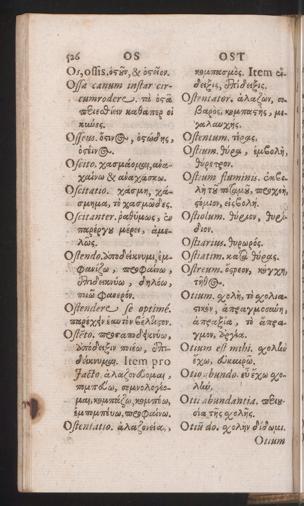 526 OS OST
Os, ossis. ὀστοῦν, & ὀστέον.
Ossa canum instar cir-
cumrodere. τὰ ὀστᾶ
καθάπερ οἱ
κύνες.
Osseus. ὀστεώδης,
Oscito. χασμάομαι, ἀνα-
χαίνω & ἀναχάσκω.
Oscitatio. χάσμη, χά-
σμημα, τὸ χασμῶδες.
Oscitanter. ῥᾳθύμως, ἐν
παρέργου μέρει, ἀμε-
λῶς.
Ostendo. ὑποδείκνυμι, ἐμ-
φανίζω, προφαίνω,
ἐπιδεικνύω, δηλόω,
ποιῶ φανερόν.
Ostendere se optimè.
παρέχειν ἑαυτὸν βέλτιστον.
Ostēto. προσαποδείκνυμι,
ὑπόδειξιν ποιέω, ἐπι-
δείκνυμι. Item pro
Jacto ἀλαζονεύομαι,
σεμνολογέο-
μαι, κομπάζω, κομπέω,
ἐμπομπεύω, προφαίνω.
Ostentatio. ἀλαζονεία,
κομπασμός. Item ἔν-
δειξις, ἐπίδειξις.
Ostentator. ἀλαζών, σο-
βαρός, κομπαστής, με-
γάλαυχος.
Ostentum. τέρας.
Ostium. θύρα, ἐμβολή,
θύρετρον.
Ostium fluminis. ἐκβο-
λὴ τοῦ ποταμοῦ, προχοή,
στόμιον, εἰσβολή.
Ostiolum. θύριον, θυρί-
διον.
Ostiarius. θυρωρός.
Ostiatim. κατὰ θύρας.
Ostreum. ὄστρεον, κόγχη,
τῆθος.
Otium. σχολή, τὸ σχολια-
στικόν, ἀπραγμοσύνη,
ἀπραξία, τὸ ἄπρα-
γμον, ἀργία.
Otium est mihi. σχολὴν
ἔχω, εὐκαιρῶ.
Otio abundo. εὖ ἔχω σχο-
λῆς.
Otii abundantia. περιου-
σία τῆς σχολῆς.
Otiū do. σχολὴν δίδωμι.
Otium